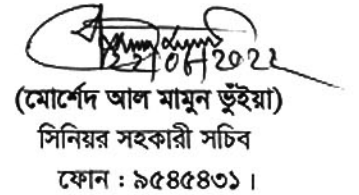 22/06/2022
(মোর্শেদ আল মামুন ভুঁইয়া)
সিনিয়র সহকারী সচিব
ফোন : ৯৫৪৫৪৩১।